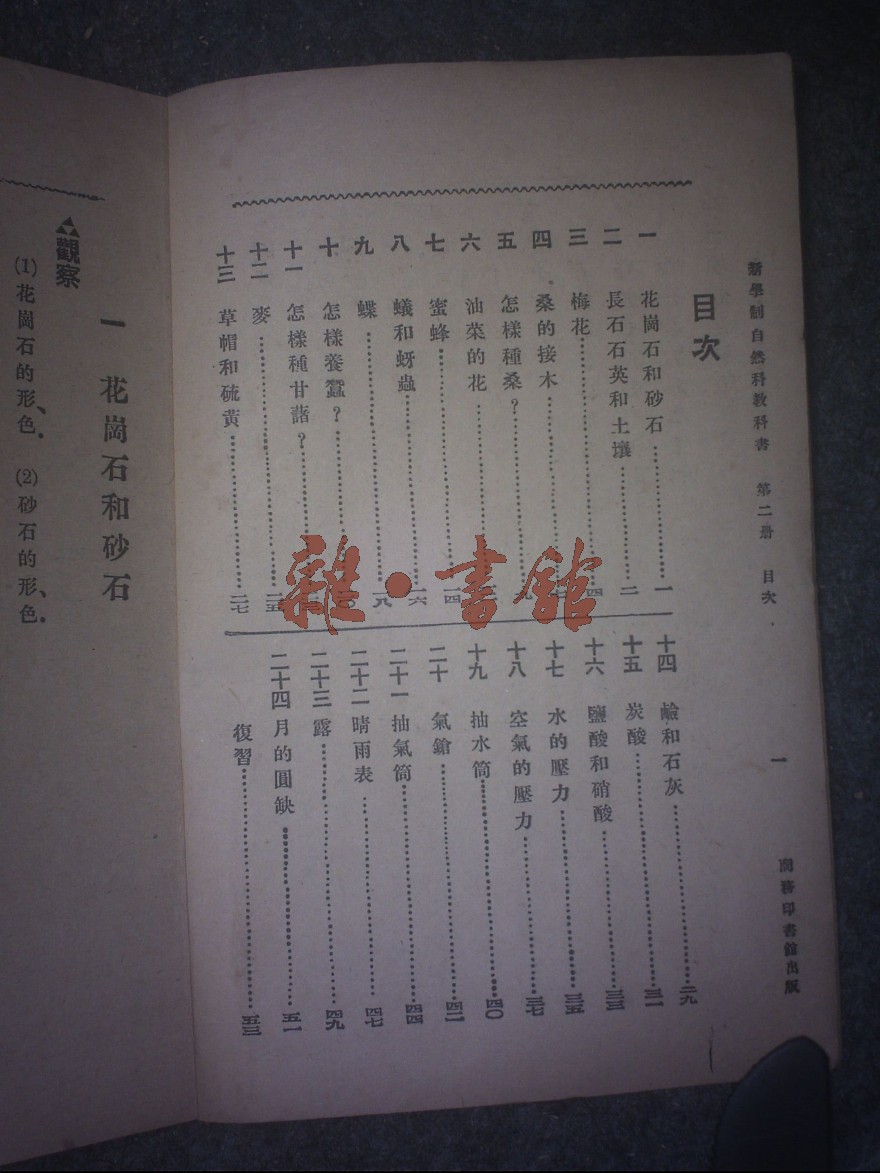 新學制自然科教科書 第二册 目次 一 商務印書館出版
目次
一 花崗石和砂石 一
二 長石石英和土壤 二
三 梅花 四
四 桑的接木
五 怎樣種桑？
六 油菜的花
七 蜜蜂 一四
八 蟻和蚜蟲 一六
九 蝶 一九
十 怎樣養蠶？ 二〇
十一 怎樣種甘藷？
十二 麥 二五
十三 草帽和硫黃 二七
十四 鹼和石灰 二九
十五 炭酸 三一
十六 鹽酸和硝酸 三三
十七 水的壓力 三五
十八 空氣的壓力 三七
十九 抽水筒 四〇
二十 氣鎗 四二
二十一 抽氣筒 四四
二十二 晴雨表 四七
二十三 露 四九
二十四 月的圓缺 五一
復習 五三
一 花崗石和砂石
觀察
(1)花崗石的形、色. (2)砂石的形、色.
雜·書館